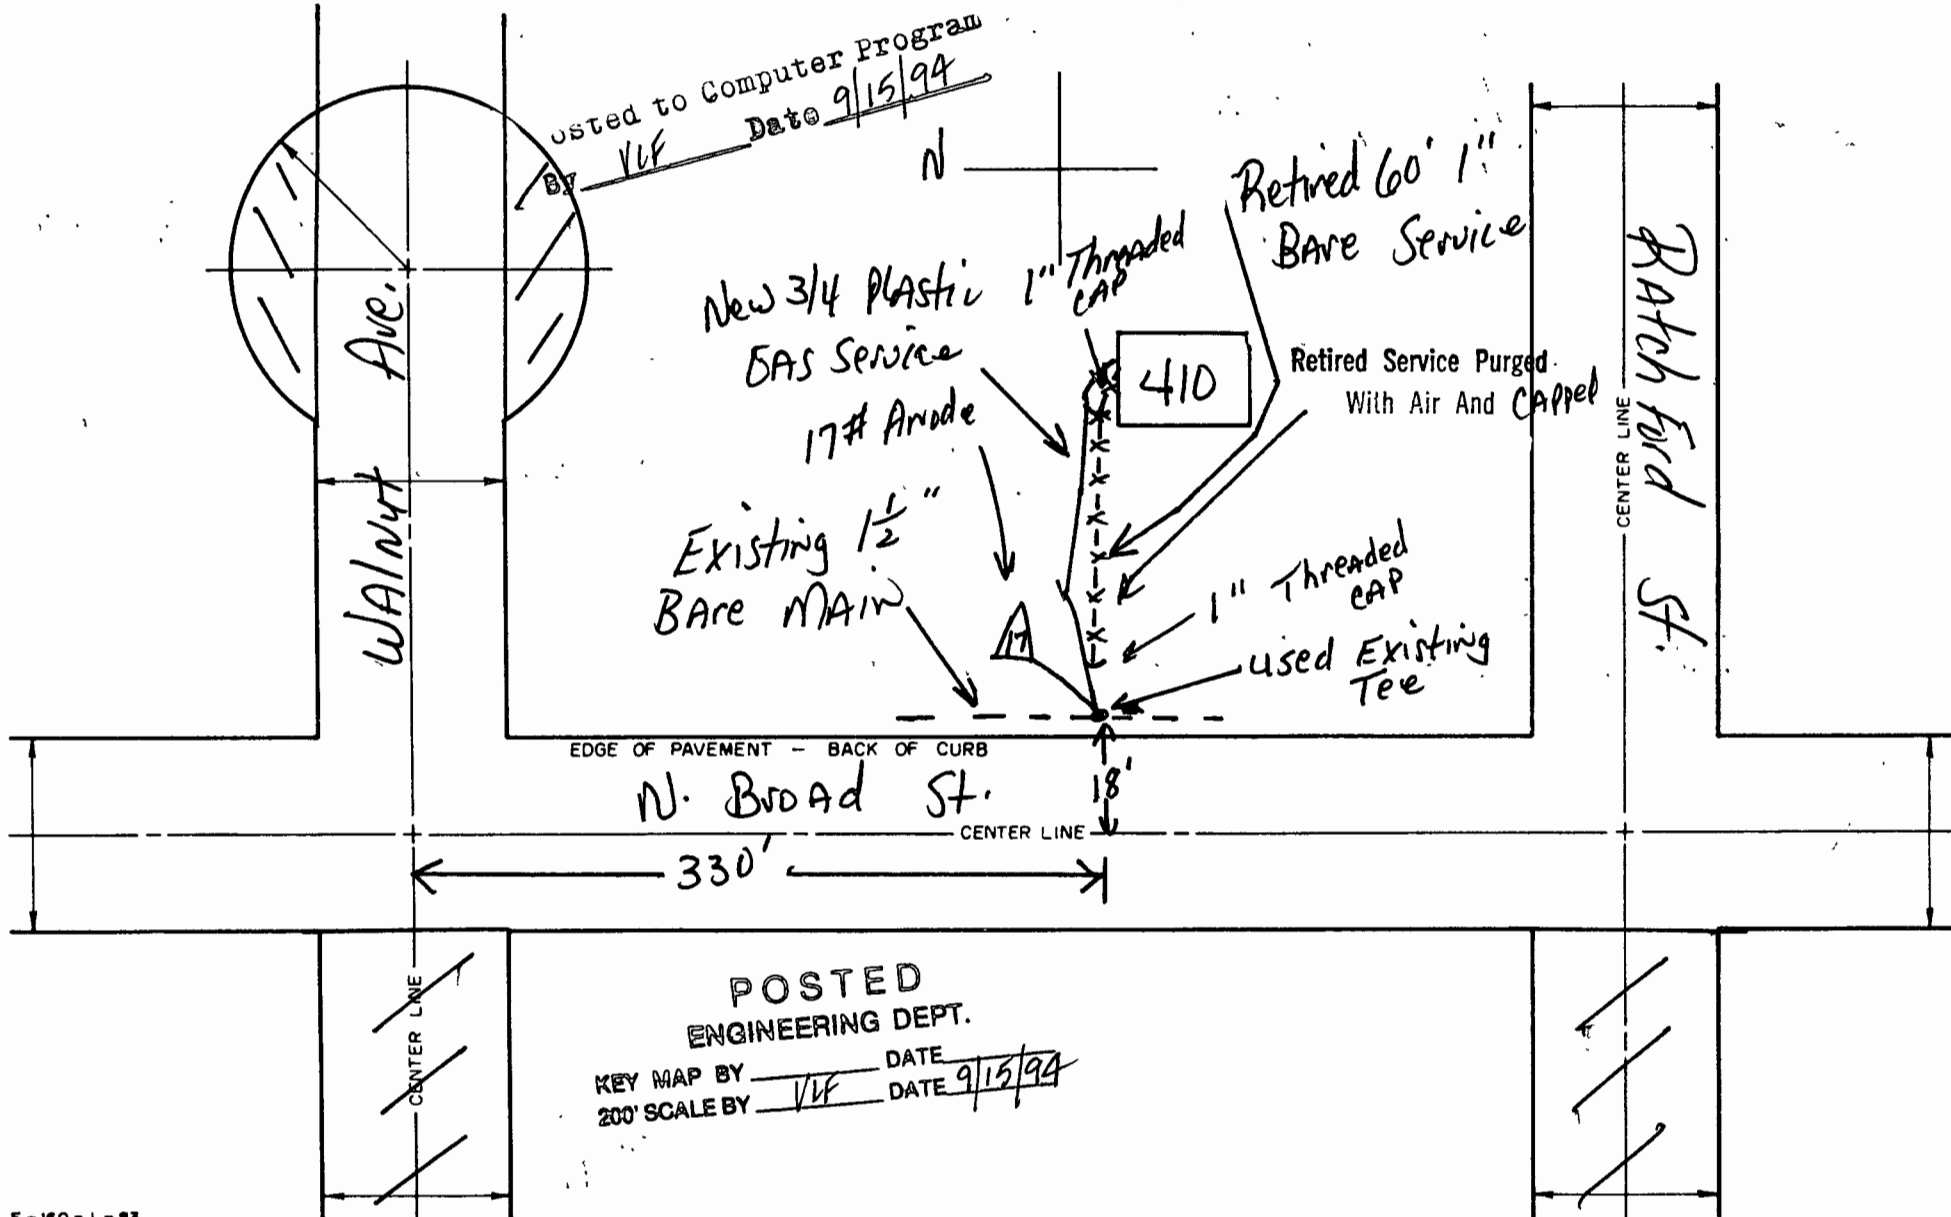 osted to Computer Program
By VLF Date 9/15/94
N
Retired 60' 1"
BAre Service
New 3/4 PlAstic
GAS Service
1" Threaded
CAP
17# Anode
410
Retired Service Purged
With Air And CAppel
Existing 1 1/2"
BAre MAIN
17
1" Threaded
CAP
used Existing
Tee
WAlNut Ave.
RAtchFord St.
CENTER LINE
EDGE OF PAVEMENT - BACK OF CURB
N. BroAd St.
18'
CENTER LINE
330'
CENTER LINE
POSTED
ENGINEERING DEPT.
KEY MAP BY DATE
200' SCALE BY VLF DATE 9/15/94